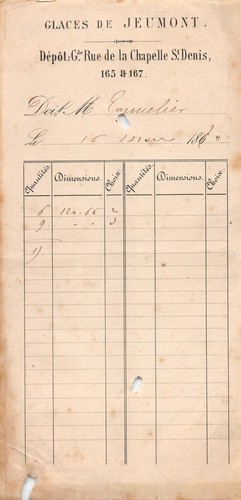 GLACES DE JEUMONT.
Dépôt: Gde Rue de la Chapelle St Denis,
165 & 167.
Doit M
Le 16 Mars 186
Quantités. Dimensions. Choix. Quantités. Dimensions. Choix.
6 120.66 2
9 " " 3
15